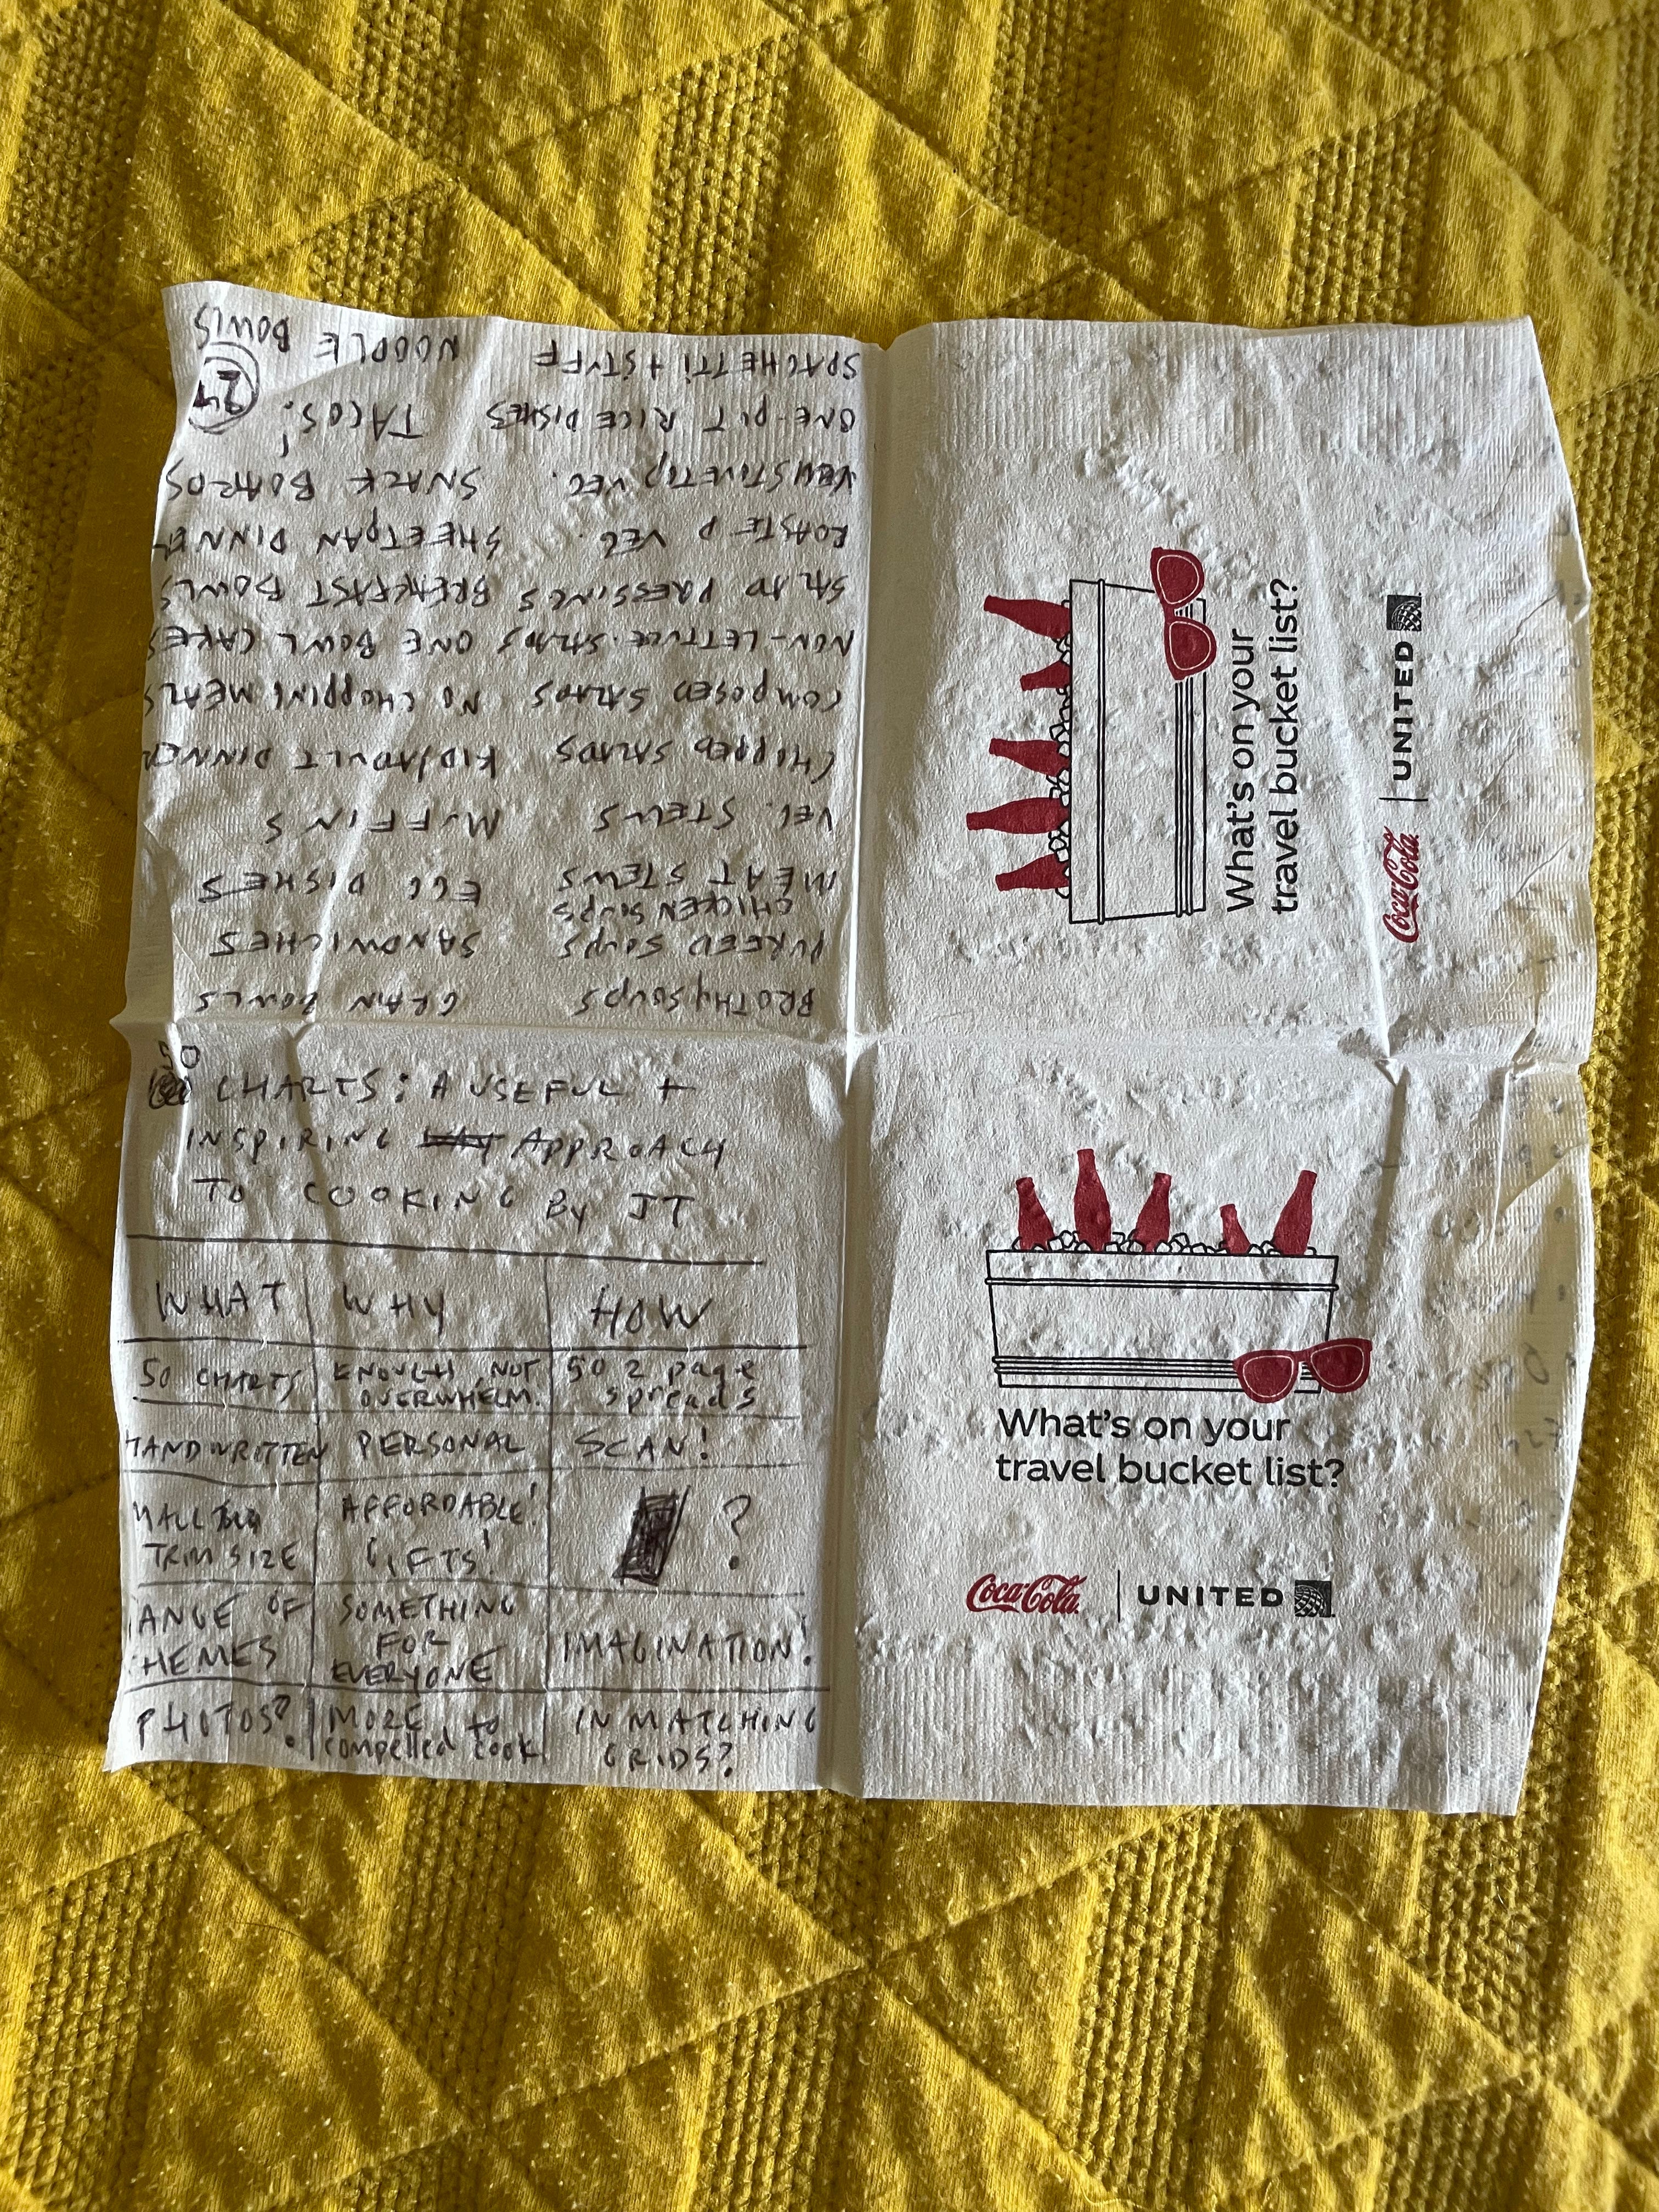 50 CHARTS: A USEFUL +
INSPIRING APPROACH
TO COOKING BY JT
WHAT WHY HOW
50 CHARTS ENOUGH, NOT OVERWHELM. 50 2 page spreads
HANDWRITTEN PERSONAL SCAN!
TRIM SIZE AFFORDABLE! GIFTS! ?
RANGE OF THEMES SOMETHING FOR EVERYONE IMAGINATION!
PHOTOS? MORE compelled to cook IN MATCHING GRIDS?
BROTHY SOUPS GRAIN BOWLS
PUREED SOUPS SANDWICHES
CHICKEN SOUPS
MEAT STEWS EGG DISHES
VEG. STEWS MUFFINS
CHOPPED SALADS KID/ADULT DINNER
COMPOSED SALADS NO CHOPPING MEALS
NON-LETTUCE SALADS ONE BOWL CAKES
SALAD DRESSINGS BREAKFAST BOWLS
ROASTED VEG. SHEETPAN DINNER
STOVETOP VEG. SNACK BOARDS
ONE-POT RICE DISHES TACOS! 24
SPAGHETTI + STUFF NOODLE BOWLS
What's on your
travel bucket list?
Coca-Cola | UNITED
What's on your
travel bucket list?
Coca-Cola | UNITED